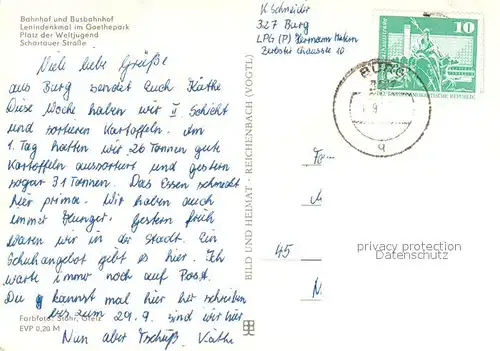 Bahnhof und Busbahnhof
Lenindenkmal im Goethepark
Platz der Weltjugend
Schartauer-Straße
Viele liebe Grüße
aus Burg sendet Euch Käthe
Diese Woche haben wir II. Schicht
und sortieren Kartoffeln. Am
1. Tag hatten wir 26 Tonnen gute
Kartoffeln aussortiert und gestern
sogar 31 Tonnen. Das Essen schmeckt
hier prima. Wir haben auch
immer Hunger. Gestern früh
waren wir in der Stadt. Ein
Schuhangebot gibt es hier. Ich
warte immer noch auf Post.
Du kannst mal hier her schreiben
bis zum 29.9. sind wir hier
Farbfoto: Stöhr, Greiz
EVP 0,20 M
Nun aber Tschüß Käthe
BILD UND HEIMAT · REICHENBACH (VOGTL)
K Schneider
327 Burg
LPG (P) Hermann Matern
Zerbster Chaussee 10
10
BURG
9
q
45
privacy protection
PRIVATSPHÄRE